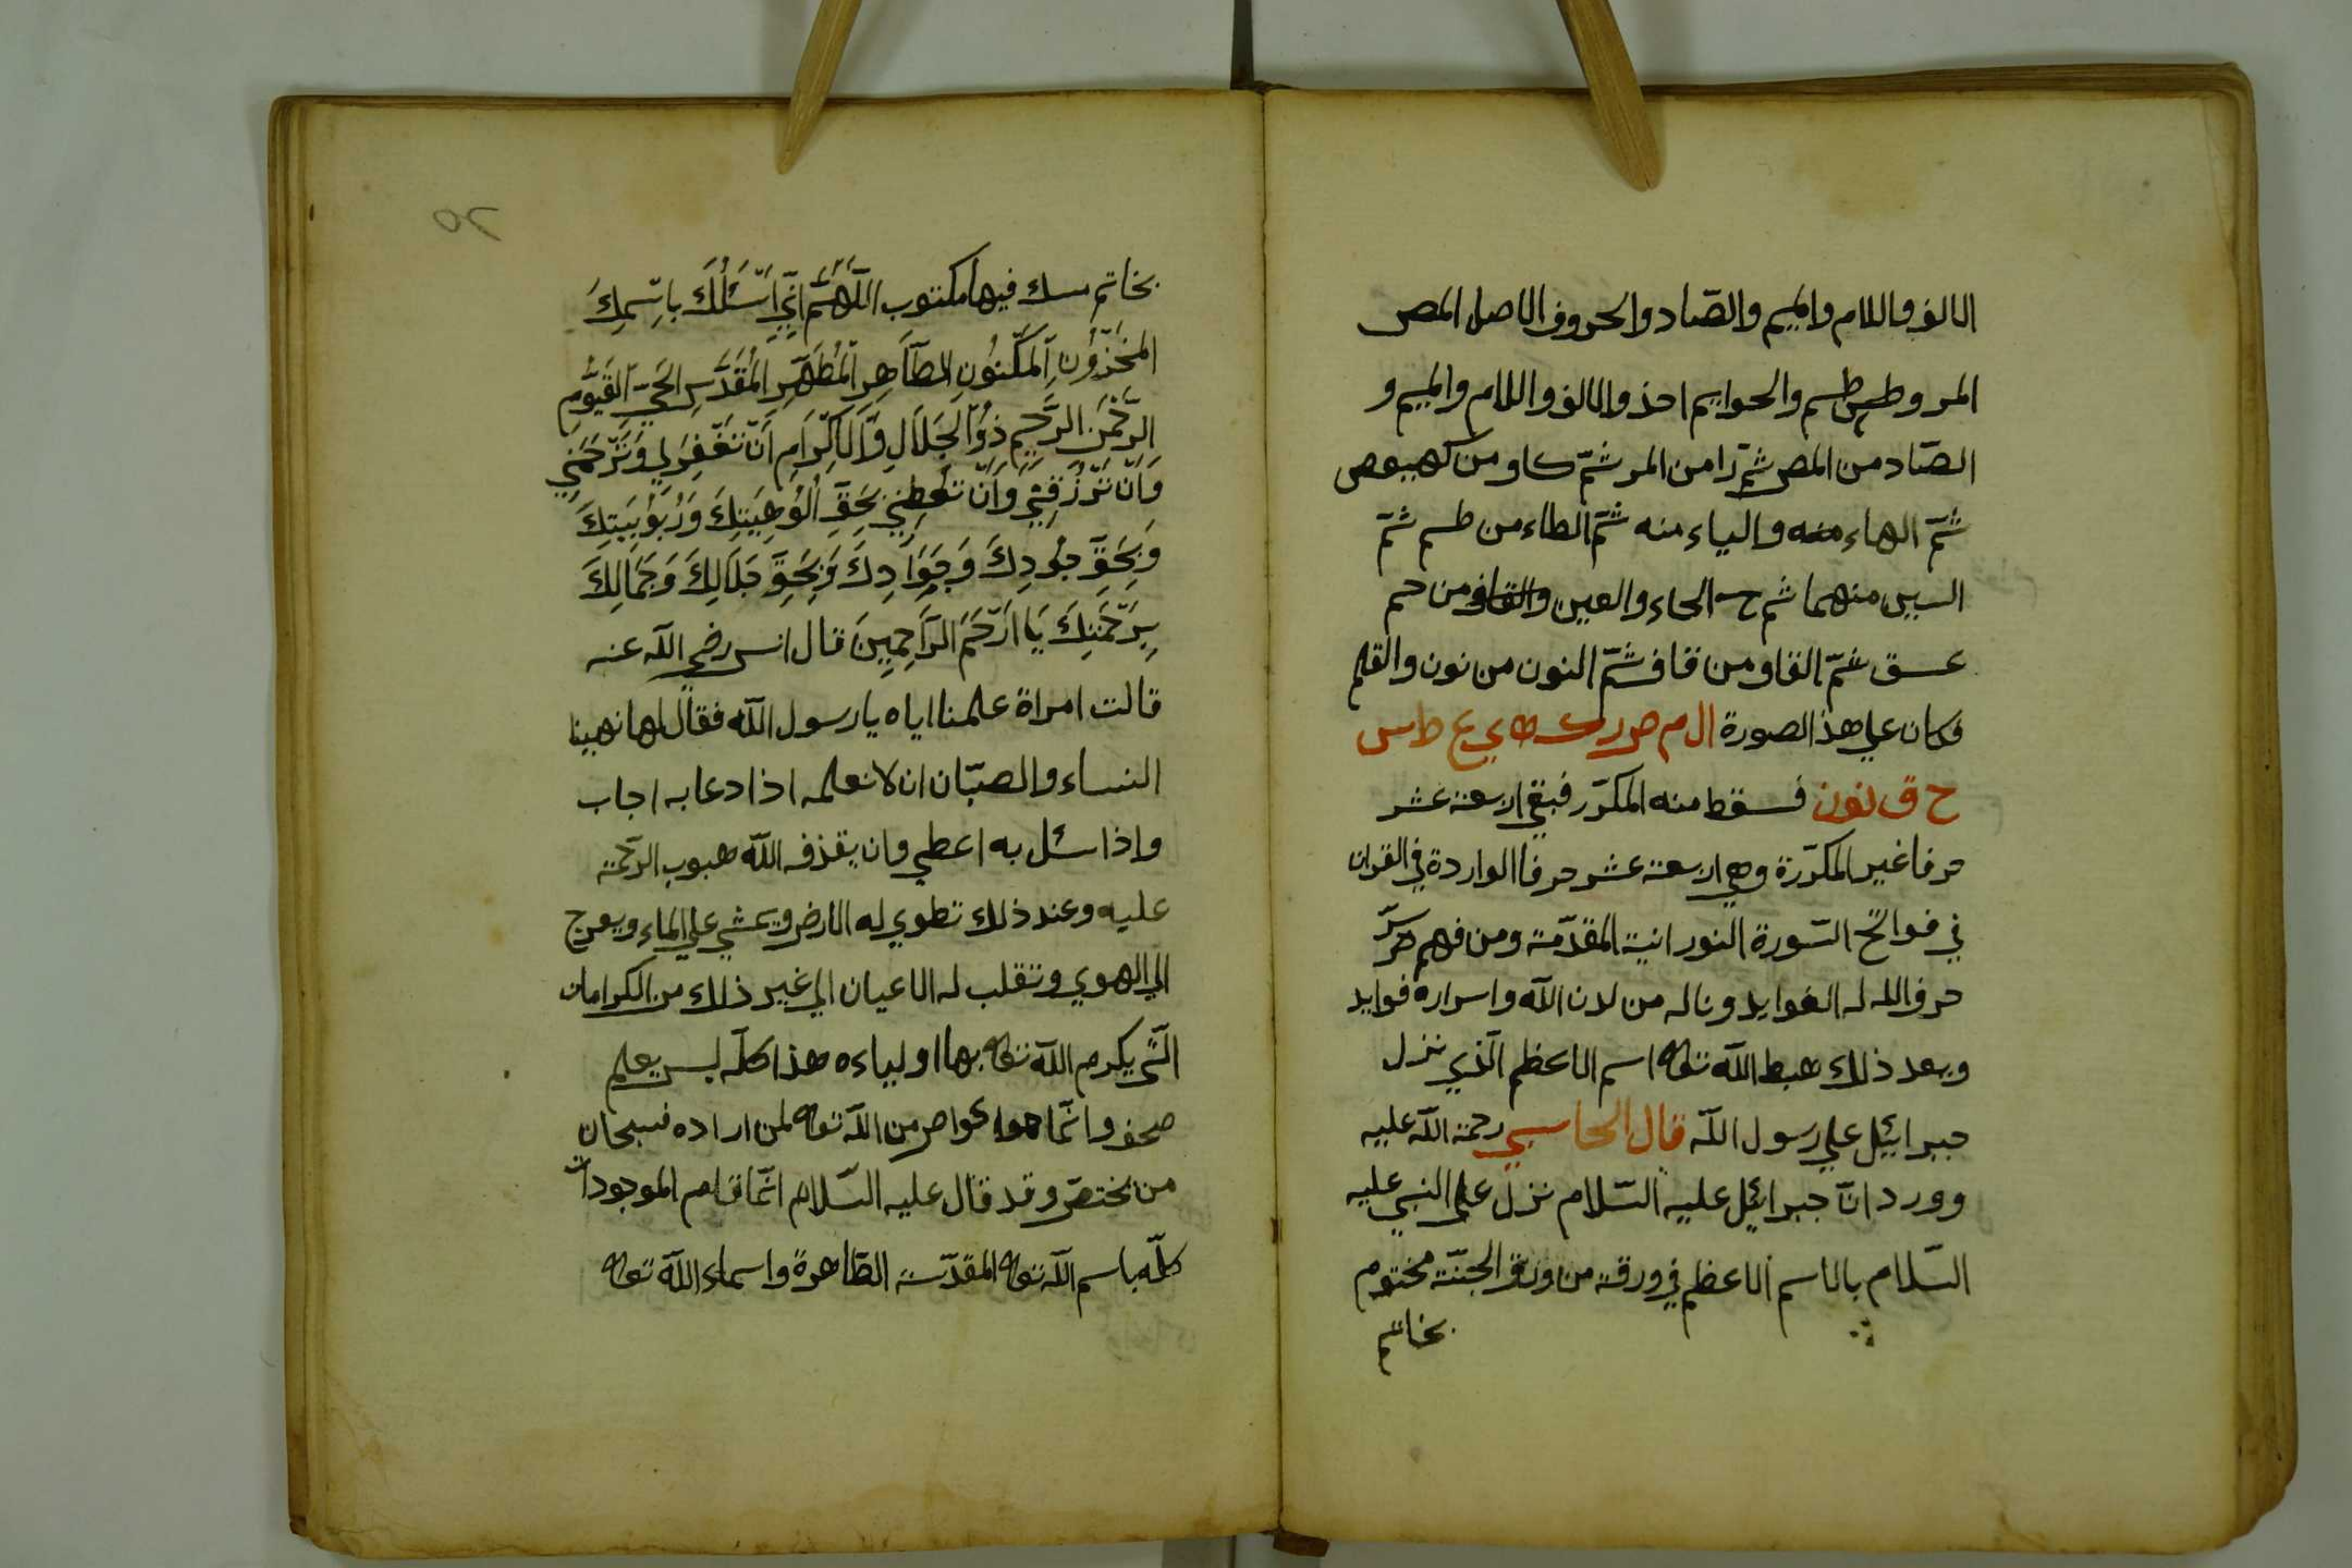 الالف واللام والميم والصّاد والحروف الاصل المص
المر وطس طسم والحواميم احذ والالف واللام والميم و
الصّاد من المص ثمّ را من المر ثمّ كاو من كهيعص
ثمّ الهاء منه والياء منه ثمّ الطاء من طسم ثمّ
السين منهما ثم ح الحاء والعين والقاف من حم
عسق ثمّ القاو من قاف ثمّ النون من نون والقلم
فكان علي هذ الصورة ال م ص ر ك ه ي ع ط س
ح ق نون فسقط منه المكرّر فبقي اربعة عشر
حرفا غير المكرّرة وهي اربعة عشر حرفا الواردة في القران
في فواتح السّورة النورانية المقدّمة ومن فهم سرّ
حرف الله له الفوايد وناله من لدن الله واسراره فوايد
وبعد ذلك هبط الله تعالى اسم الاعظم الّذي نزل
جبرائيل علي رسول الله قال الحاسبي رحمة الله عليه
وورد انّ جبرائيل عليه السّلام نزل على النبي عليه
السّلام بالاسم الاعظم في ورقة من ورق الجنّة مختوم
بخاتم
٢٥
بخاتم مسك فيها مكتوب اَللّٰهُمَّ اِنّيِ اَسْئَلُكَ باِسْمِكَ
المَخْزُونِ اَلمَكْنُونِ الطَّاهِرِ اَلْمُطَهَّرِ اَلْمُقَدَّسِ الحَيِّ القَيُّومِ
الرَّحْمَنِ الرَّحِيمِ ذُوْ الْجَلاَلِ وَالاَكْرَامِ اَنْ تَغْفِرَلِي وَتَرْحَمَنِي
وَاَنْ تَرْزُقَنِي وَاَنْ تُعْطِنِي بِحَقِّ اُلُوْهِيَتِكَ وَرُبُوْبِيَتِكَ
وَبِحَقِّ جُودِكَ وَجَوَادِكَ وَبِحَقِّ جَلاَلِكَ وَجَمَالِكَ
بِرَحْمَتِكَ يَا اَرْحَمَ الرَّاحِمِينَ قال انس رضي الله عنه
قالت امراة علمنا اياه يا رسول الله فقال لها نهينا
النساء والصبّان ان لا نعلمه اذا دعا به اجاب
واذا سئل به اعطي وان يقذف الله هبوب الرّحمة
عليه وعند ذلك تطوي له الارض ويمشي علي الماء ويعرج
الي الهوي وتقلب له الاعيان الي غير ذلك من الكرامات
الّتى يكرم الله تعالى بها اولياءه هذا كلّه ليس يعلم
صحف وانّما هوا خواص من الله تعالى لمن اراده فسبحان
من يختصّ وقد قال عليه السّلام انّما قام الموجودات
كلّه باسم الله تعالى المقدّسة الطّاهرة واسماء الله تعالى